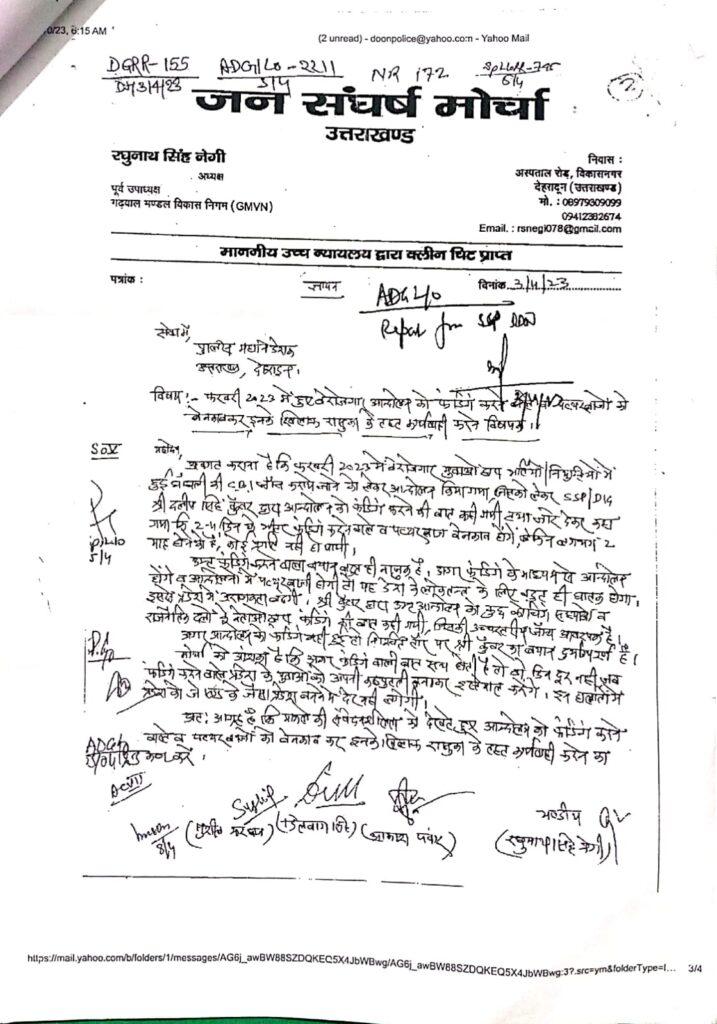 0/23, 6:15 AM
(2 unread) - doonpolice@yahoo.com - Yahoo Mail
DGRR-155
ADG/LO-2211
NR 172
Dt 3/4/23
5/4
6/4
2
जन संघर्ष मोर्चा
उत्तराखण्ड
रघुनाथ सिंह नेगी
अध्यक्ष
पूर्व उपाध्यक्ष
गढ़वाल मण्डल विकास निगम (GMVN)
निवास :
अस्पताल रोड, विकासनगर
देहरादून (उत्तराखण्ड)
मो. : 08979309099
09412382674
Email. : rsnegi078@gmail.com
माननीय उच्च न्यायलय द्वारा क्लीन चिट प्राप्त
पत्रांक :
ज्ञापन
दिनांक 3/4/23
ADG L/O
Report from SSP DDN
सेवा में,
पुलिस महानिदेशक
उत्तराखण्ड, देहरादून।
विषय :- फरवरी 2023 में हुए बेरोजगार आन्दोलन को फंडिंग करने वाले व पत्थरबाजों को
बेनकाबकर इनके खिलाफ रासुका के तहत कार्यवाही करने विषयक।
महोदय,
अवगत कराना है कि फरवरी 2023 में बेरोजगार युवाओं द्वारा भर्तियों/नियुक्तियों में
हुई धांधली की C.B.I जाँच कराये जाने को लेकर आन्दोलन किया गया, जिसको लेकर SSP/DIG
श्री दलीप सिंह कुँवर द्वारा आन्दोलन को फंडिंग करने की बात कही गयी, तथा जोर देकर कहा
गया कि 2-4 दिन के भीतर फंडिंग करने वाले व पत्थरबाज बेनकाब होंगे, लेकिन लगभग 2
माह होने को है, कोई प्रगति नहीं हो पायी।
उक्त फंडिंग करने वाला बयान बहुत ही नाजुक है। अगर फंडिंग के माध्यम से आन्दोलन
होंगे व आन्दोलनों में पत्थरबाजी होगी तो यह देश के लोकतन्त्र के लिए बहुत ही घातक होगा।
इससे प्रदेश में अराजकता बढ़ेगी। श्री कुँवर द्वारा उक्त आन्दोलन को कुछ कोचिंग संस्थानों व
राजनैतिक दलों के नेताओं द्वारा फंडिंग की बात कही गयी, जिसकी उच्चस्तरीय जाँच आवश्यक है।
अगर आन्दोलन को फंडिंग नहीं हुई तो निश्चित तौर पर श्री कुँवर का बयान दुर्भाग्यपूर्ण है।
मोर्चा को आशंका है कि अगर फंडिंग वाली बात सत्य होती है तो वो दिन दूर नहीं जब
फंडिंग करने वाले प्रदेश के युवाओं को अपनी कठपुतली बनाकर इस्तेमाल करेंगे। इन हालातों में
अतः आग्रह है कि मामले की संवेदनशीलता को देखते हुए आन्दोलन को फंडिंग करने
वाले व पत्थरबाजों को बेनकाब कर इनके खिलाफ रासुका के तहत कार्यवाही करने का
कष्ट करें।
भवदीय
(आकाश पंवार)
(रघुनाथ सिंह नेगी)
https://mail.yahoo.com/b/folders/1/messages/AG6j_awBW88SZDQKEQ5X4JbWBwg/AG6j_awBW88SZDQKEQ5X4JbWBwg:3?.src=ym&folderType=I... 3/4